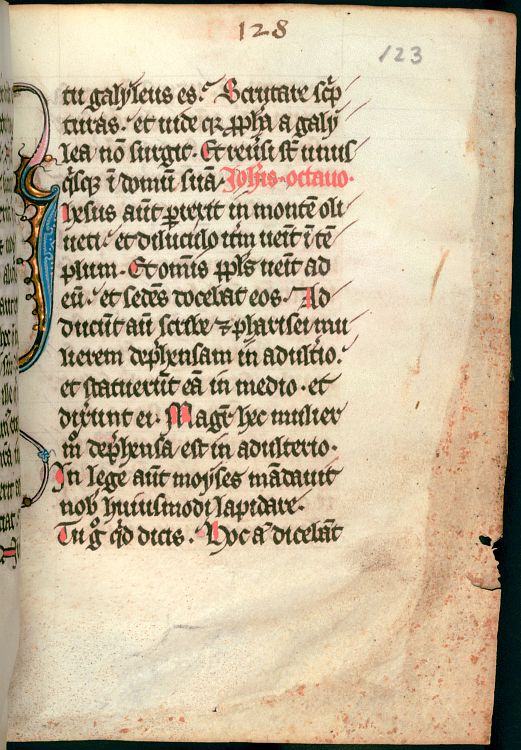 128
123
tu galyleus es. Scrutare sc̄p
turas. et uide qꝛ ꝓph̄a a galy
lea nō surgit. Et reuͥsi st̄ unus
qͥsqꝫ ī domū suā. Joh̄is octauo.
Ihesus aūt ꝑrexit in montē oli
ueti. et diluculo itm̄ uenit ī tē
plum. Et omīs ppl̄s uenit ad
eū. et sedēs docebat eos. Ad
ducūt aū scribe ⁊ pharisei mu
lierem dep̄hensam in adultͥio.
et statuerūt eā in medio. et
dixͬunt ei. Magr̄ hec mulier
m̊ dep̄hensa est in adulterio.
In lege aūt moyses mādauit
nob̄ huiusmodi lapidare.
Tu gͦ qͥd dicis. Hoc aͧ dicebāt